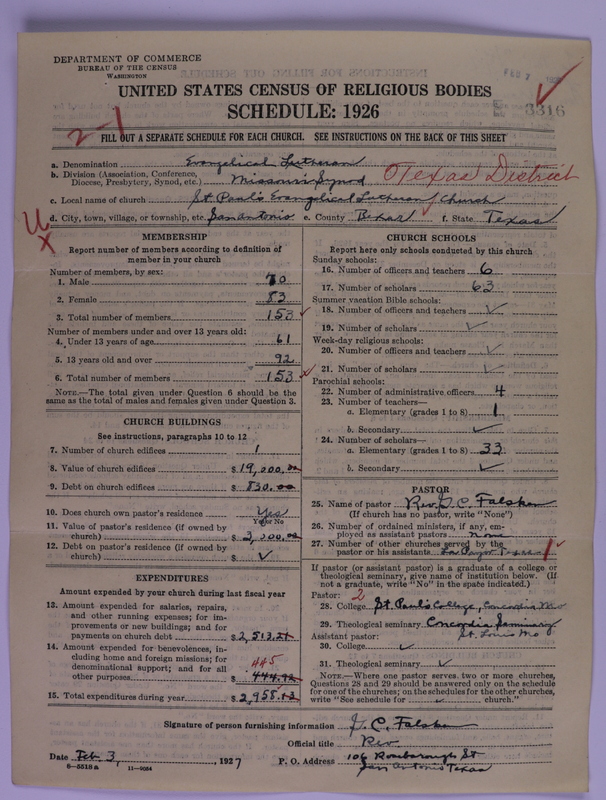 DEPARTMENT OF COMMERCE
BUREAU OF THE CENSUS
WASHINGTON
FEB 7
3316
UNITED STATES CENSUS OF RELIGIOUS BODIES
SCHEDULE: 1926
2-1
FILL OUT A SEPARATE SCHEDULE FOR EACH CHURCH. SEE INSTRUCTIONS ON THE BACK OF THIS SHEET
a. Denomination Evangelical Lutheran
b. Division (Association, Conference,
Diocese, Presbytery, Synod, etc.) Missouri Synod Texas District
c. Local name of church St. Paul's Evangelical Lutheran Church
d. City, town, village, or township, etc. San Antonio e. County Bexar f. State Texas
U
X
MEMBERSHIP
Report number of members according to definition of
member in your church
Number of members, by sex:
1. Male 70
2. Female 83
3. Total number of members 153
Number of members under and over 13 years old:
4. Under 13 years of age 61
5. 13 years old and over 92
6. Total number of members 153
NOTE.—The total given under Question 6 should be the
same as the total of males and females given under Question 3.
CHURCH BUILDINGS
See instructions, paragraphs 10 to 12
7. Number of church edifices 1
8. Value of church edifices $19,000.00
9. Debt on church edifices $830.00
10. Does church own pastor's residence Yes
Yes or No
11. Value of pastor's residence (if owned by
church) $3,000.00
12. Debt on pastor's residence (if owned by
church) $
EXPENDITURES
Amount expended by your church during last fiscal year
13. Amount expended for salaries, repairs,
and other running expenses; for im-
provements or new buildings; and for
payments on church debt $2,513.21
14. Amount expended for benevolences, in-
cluding home and foreign missions; for
denominational support; and for all 445
other purposes $444.92
15. Total expenditures during year $2,958.13
CHURCH SCHOOLS
Report here only schools conducted by this church
Sunday schools:
16. Number of officers and teachers 6
17. Number of scholars 63
Summer vacation Bible schools:
18. Number of officers and teachers
19. Number of scholars
Week-day religious schools:
20. Number of officers and teachers
21. Number of scholars
Parochial schools:
22. Number of administrative officers 4
23. Number of teachers—
a. Elementary (grades 1 to 8) 1
b. Secondary
24. Number of scholars—
a. Elementary (grades 1 to 8) 33
b. Secondary
PASTOR
25. Name of pastor Rev. J. C. Falsken
(If church has no pastor, write "None")
26. Number of ordained ministers, if any, em-
ployed as assistant pastors none
27. Number of other churches served by the
pastor or his assistants La Pryor Texas 1
If pastor (or assistant pastor) is a graduate of a college or
theological seminary, give name of institution below. (If
not a graduate, write "No" in the space indicated.)
Pastor: 2
28. College St. Paul's College, Concordia Mo
29. Theological seminary Concordia Seminary
Assistant pastor: St. Louis Mo
30. College
31. Theological seminary
NOTE.—Where one pastor serves two or more churches,
Questions 28 and 29 should be answered only on the schedule
for one of the churches; on the schedules for the other churches,
write "See schedule for church."
Signature of person furnishing information J. C. Falsken
Official title Rev
Date Feb 3, 1927 P. O. Address 106 Roseborough St
San Antonio Texas
6-5518a 11-5084